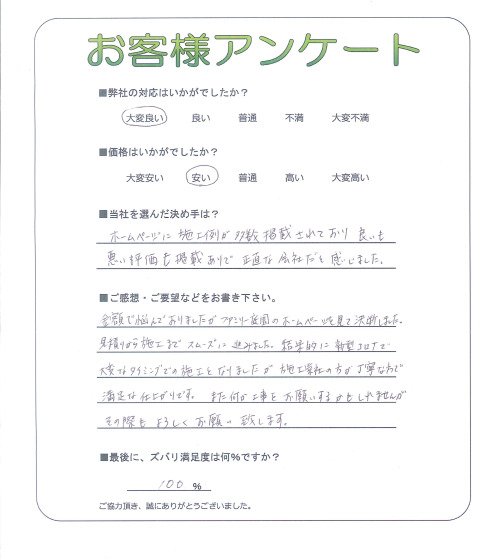 お客様アンケート
■弊社の対応はいかがでしたか？
大変良い 良い 普通 不満 大変不満
■価格はいかがでしたか？
大変安い 安い 普通 高い 大変高い
■当社を選んだ決め手は？
ホームページに施工例が多数掲載されており良いも
悪い評価も掲載ありで正直な会社だと感じました。
■ご感想・ご要望などをお書き下さい。
金額で悩んでおりましたがファミリー庭園のホームページを見て決断しました。
見積りから施工までスムーズに進みました。結果的に新型コロナで
大変なタイミングでの施工となりましたが施工業社の方が丁寧なお
満足な仕上がりです。また何か工事をお願いするかもしれませんが
その際もよろしくお願い致します。
■最後に、ズバリ満足度は何％ですか？
100 ％
ご協力頂き、誠にありがとうございました。